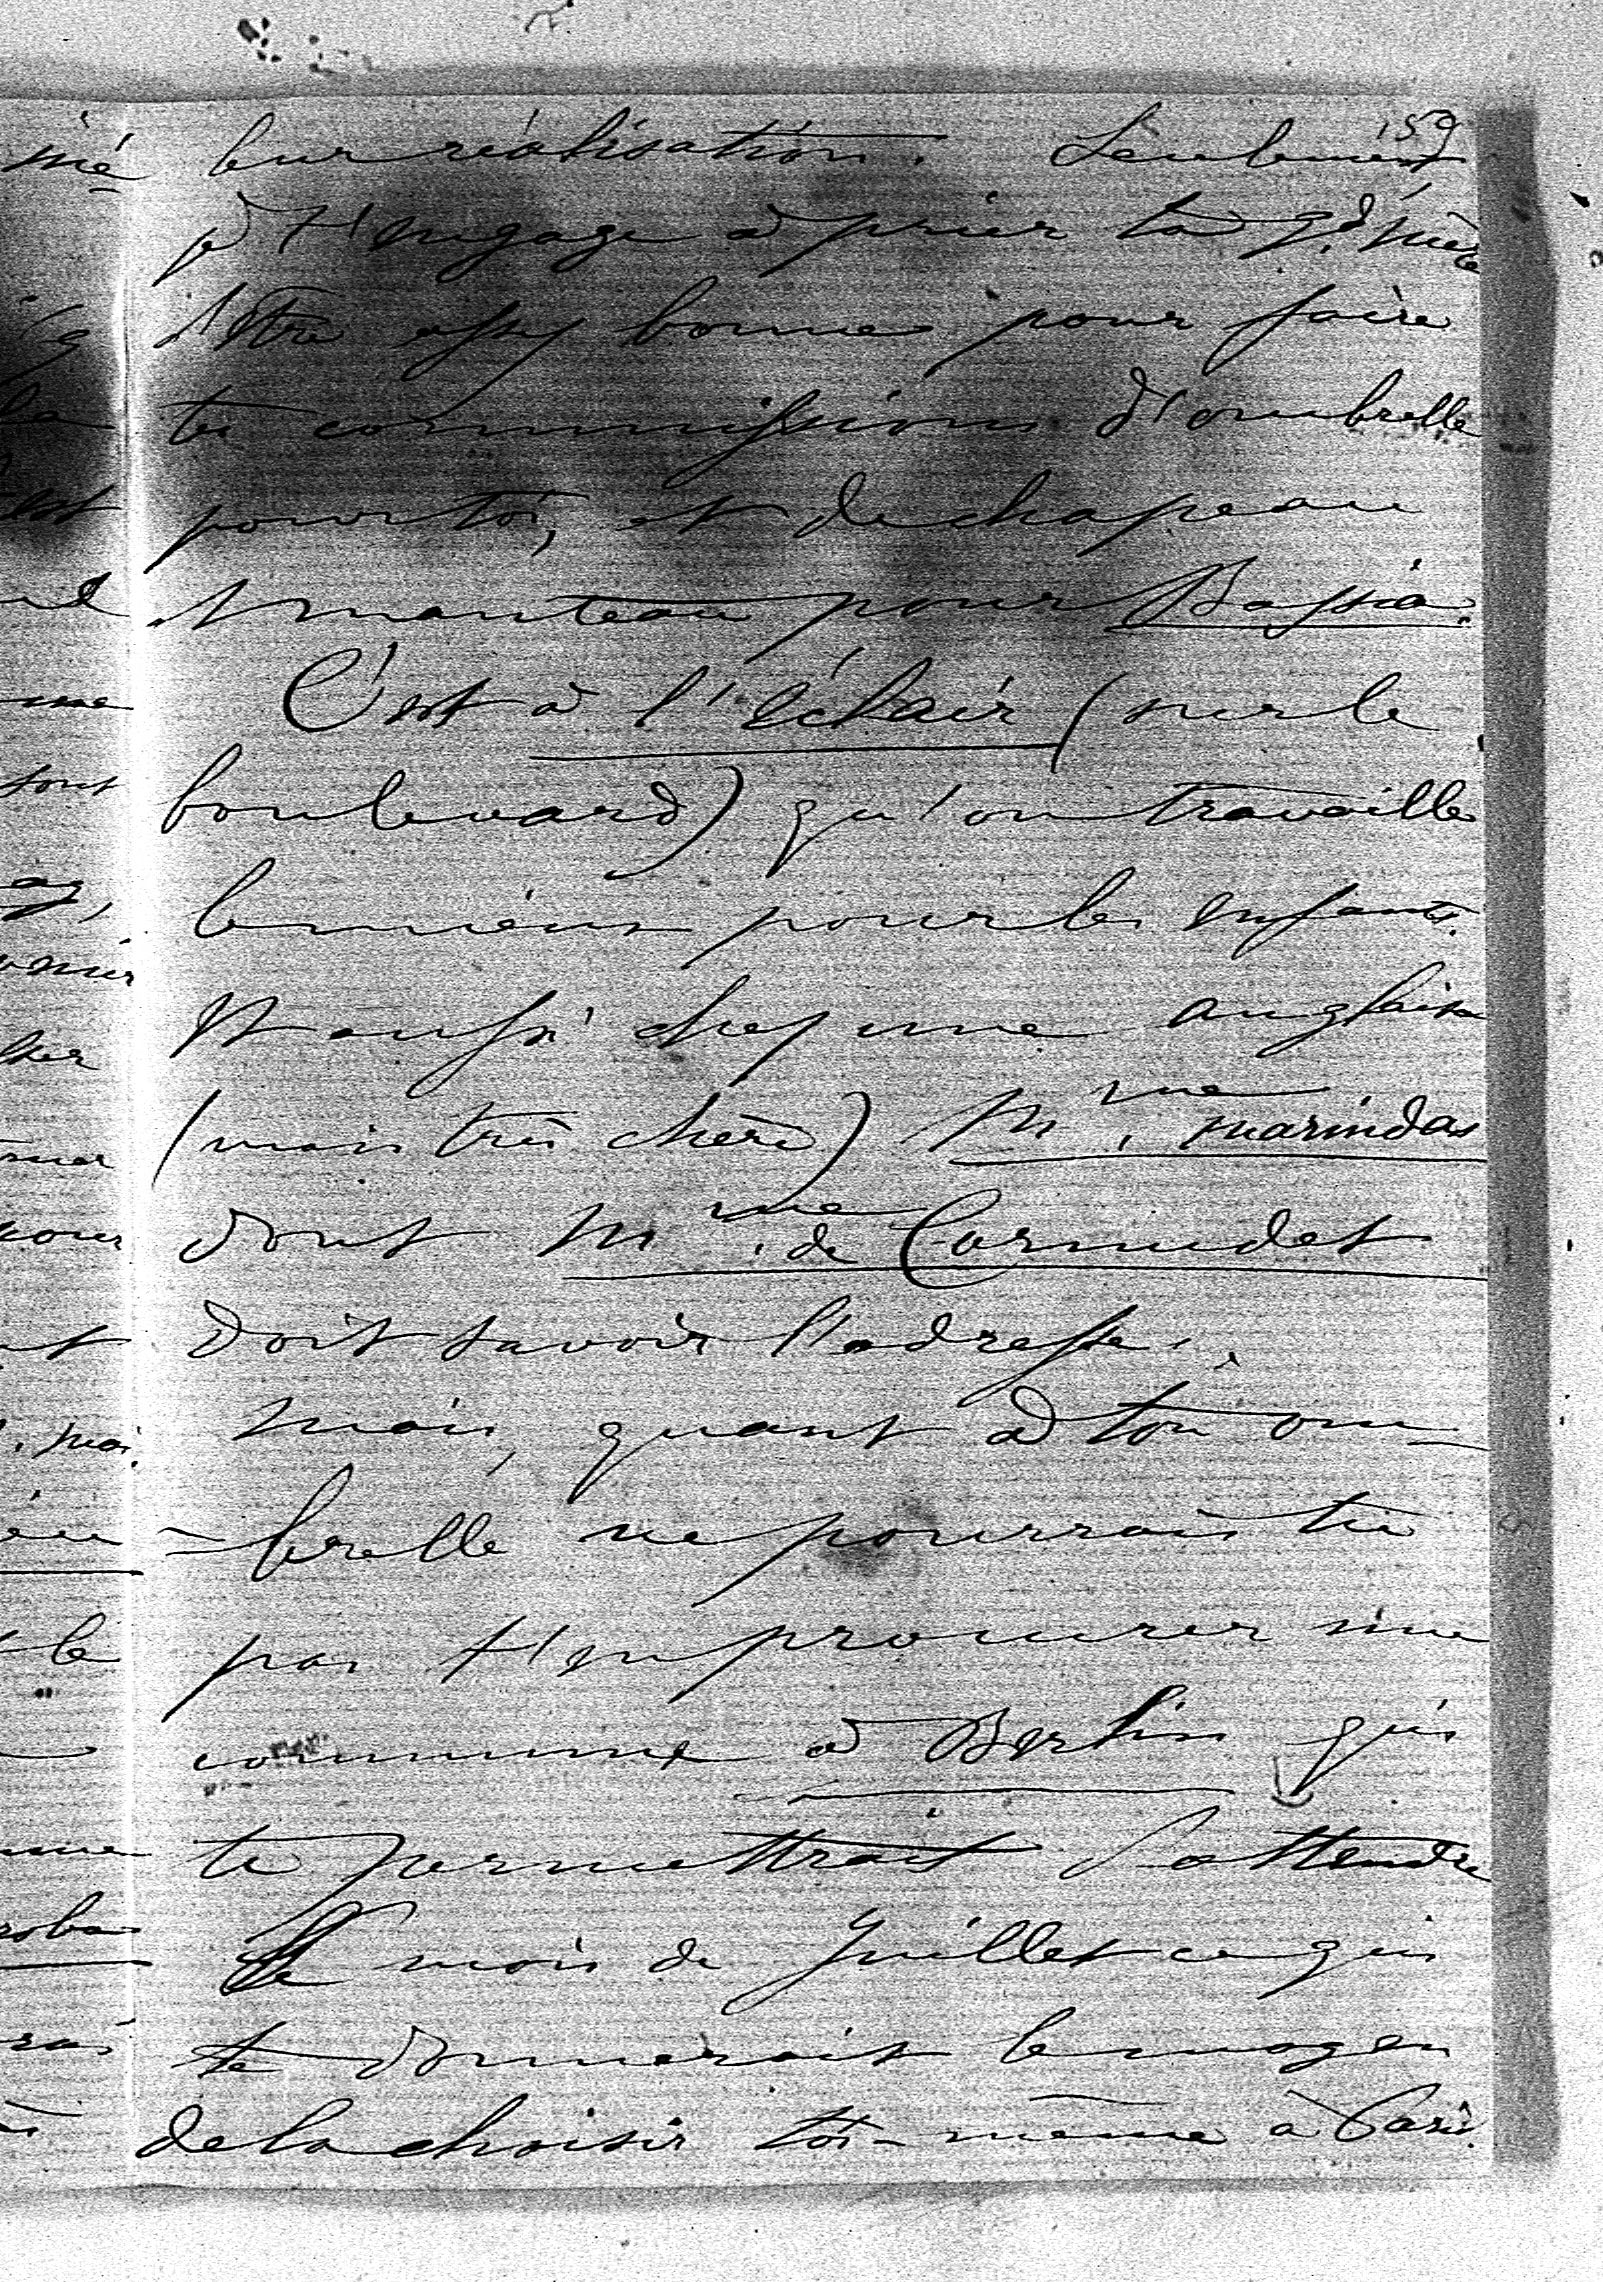 159
leur réalisation. Seulement
je t'engage à prier ta gd. mère
d'être assez bonne pour faire
tes commissions d'ombrelle
pour toi, et de chapeau
et manteau pour Bassia.
C'est à l'éclair (sur le
boulevard) qu'on travaille
le mieux pour les enfants.
Et aussi chez une anglaise
(mais très chère) Mme. marindas
dont Mme. de Cornudet
doit savoir l'adresse.
Mais, quant à ton om-
-brelle ne pourrais tu
pas t'en procurer une
commune à Berlin qui
te permettrait d'attendre
le mois de Juillet ce qui
te donnerait le moyen
de la choisir toi-même à Paris.